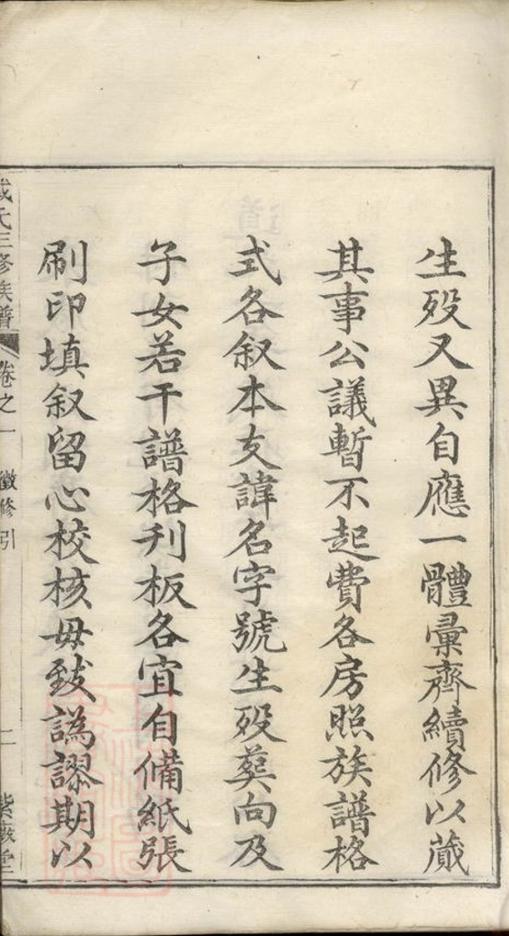 生歿又異自應一體彙齊續修以蕆
其事公議暫不起費各房照族譜格
式各叙本支諱名字號生歿葬向及
子女若干譜格刋板各宜自備紙張
刷印填叙留心校核毋致譌謬期以
氏三修族譜 卷之一 徵修引 二